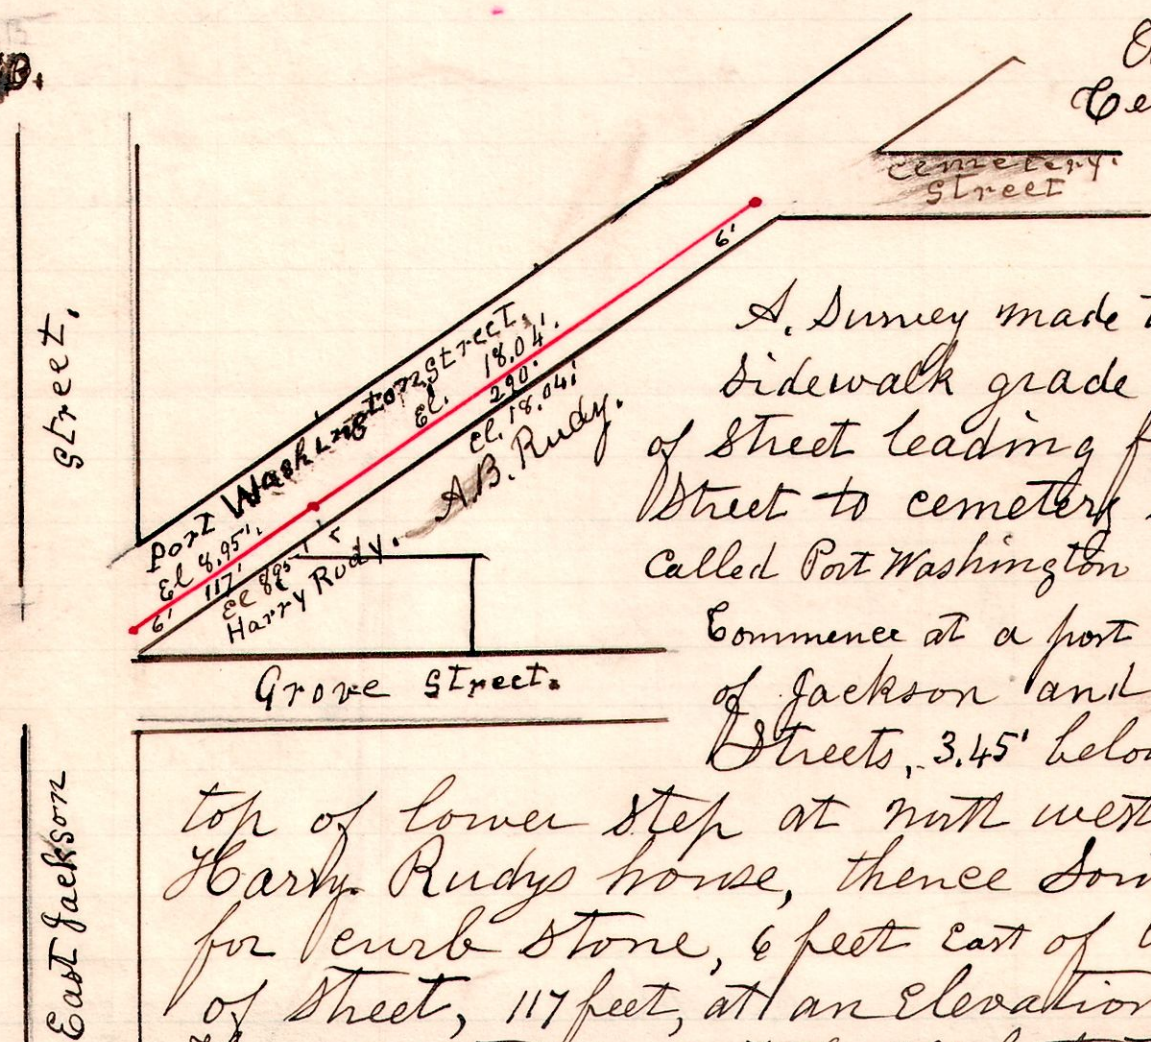 O
Ce
Cemetery.
Street
Street.
6'
Port Washington Street.
El. 18.04'.
290'
El. 18.04'
A.B. Rudy.
El 8.95'.
117'
6'
El 895
Harry Rudy.
Grove Street.
East Jackson
A. Survey made
Sidewalk grade
of Street leading f
Street to cemetery
Called Port Washington
Commence at a post
of Jackson and
Streets, 3.45' belo
top of lower step at north west
Harry Rudys house, thence Sou
for curb stone, 6 feet East of
of Street, 117 feet, at an Elevation